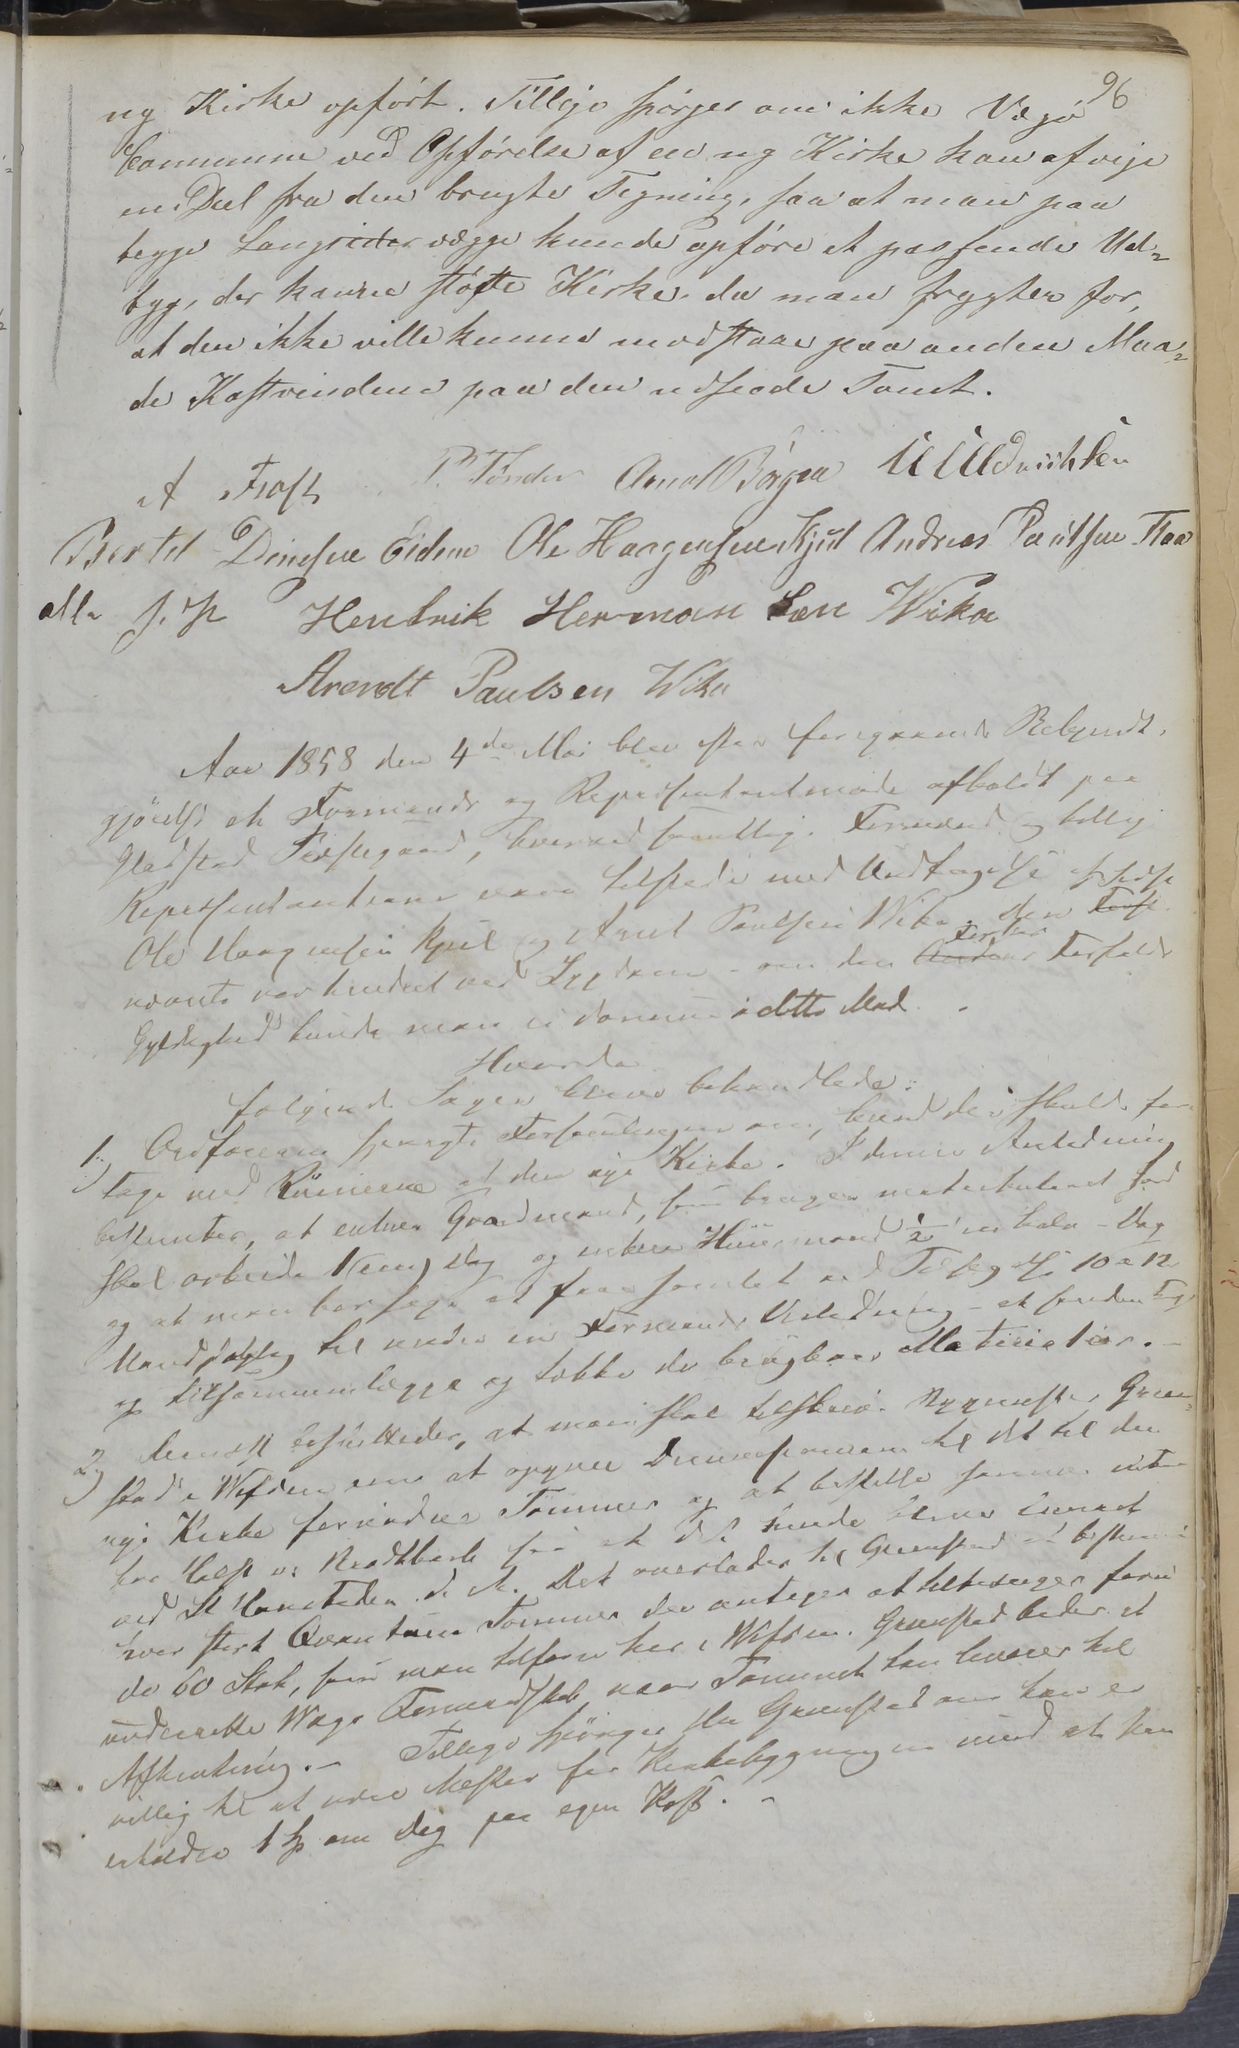 96
ny Kirke opført. Tillige spørges om ikke Vegø
Commune ved Opførelse af en ny Kirke kan afvige
en Deel fra den brugte Tegning, saa at man paa
begge Langsidevægge kunde opføre et passende Ud-
byg, der kunne støtte Kirken, da man frygter for,
at den ikke ville kunne modstaae paa anden Maa-
de Kastvindene paa den udseede Tomt.
A Froft P. Tønder Arnt Børgen U Uldriksen
Bertel Dinesen Eidem Ole Haagensen Kjul Andreas Paulsen Floa
alle J. P. Hendrik Hermansen Wika
Arendt Paulsen Wika
Aar 1858 den 4de Mai blev efter foregaaende Bekjendt-
gjørelse et Formands og Repræsentantmøde afholdt paa
Gladstad Præstegaard, hvorved samtlig Formænd og tillige
Repræsentanterne vare tilstede med Undtagelse af
Ole Haagensen Kjul og Arnt Paulsen Wika. den
nævnte var hindret ved Sygdom - om den Forfalds
Gyldighed kunde man ei dømme i dette Mød.
Hvorda
følgende Sager bleve behandlede:
1.) Ordføreren spurgte Forsamlingen om, hvad der skulde fore
tages med Ruinerne af den nye Kirke. I denne Anledning
besluttes, at enhver Gaardmand, som bruger matrikuleret Jord
skal arbeide 1 een Dag og enhver Huusmand 1/2 en halv Dag
og at man bør søge at faae samlet ved Tilsigelse 10 a 12
Mand daglig til under en Formands Veiledning - at
og tilsammenlægge og takke de brugbare Materialier. -
2) besluttedes, at man skal tilskrive Bygmester Grøn-
stad i Wefsen om at opgive Dimensionerne til det til den
nye Kirke fornødne Tømmer og at bestille samme
ved St. Hanstiden d. A. Det overlades til Grønstad at bestemme
hvor stort Qvantum Tømmer der
de 60 Stok, som man tilforn har i Wefsen. Grønstad bedes at
underrette Wegø Formandskab, naar Tømmeret kan leveres til
Afhentning. - Tillige spørges Hr Grønstad om han er
villig til at være Mester for Kirkebygningen imod at han
erholder 1 Sp om Dag paa egen Kost. -